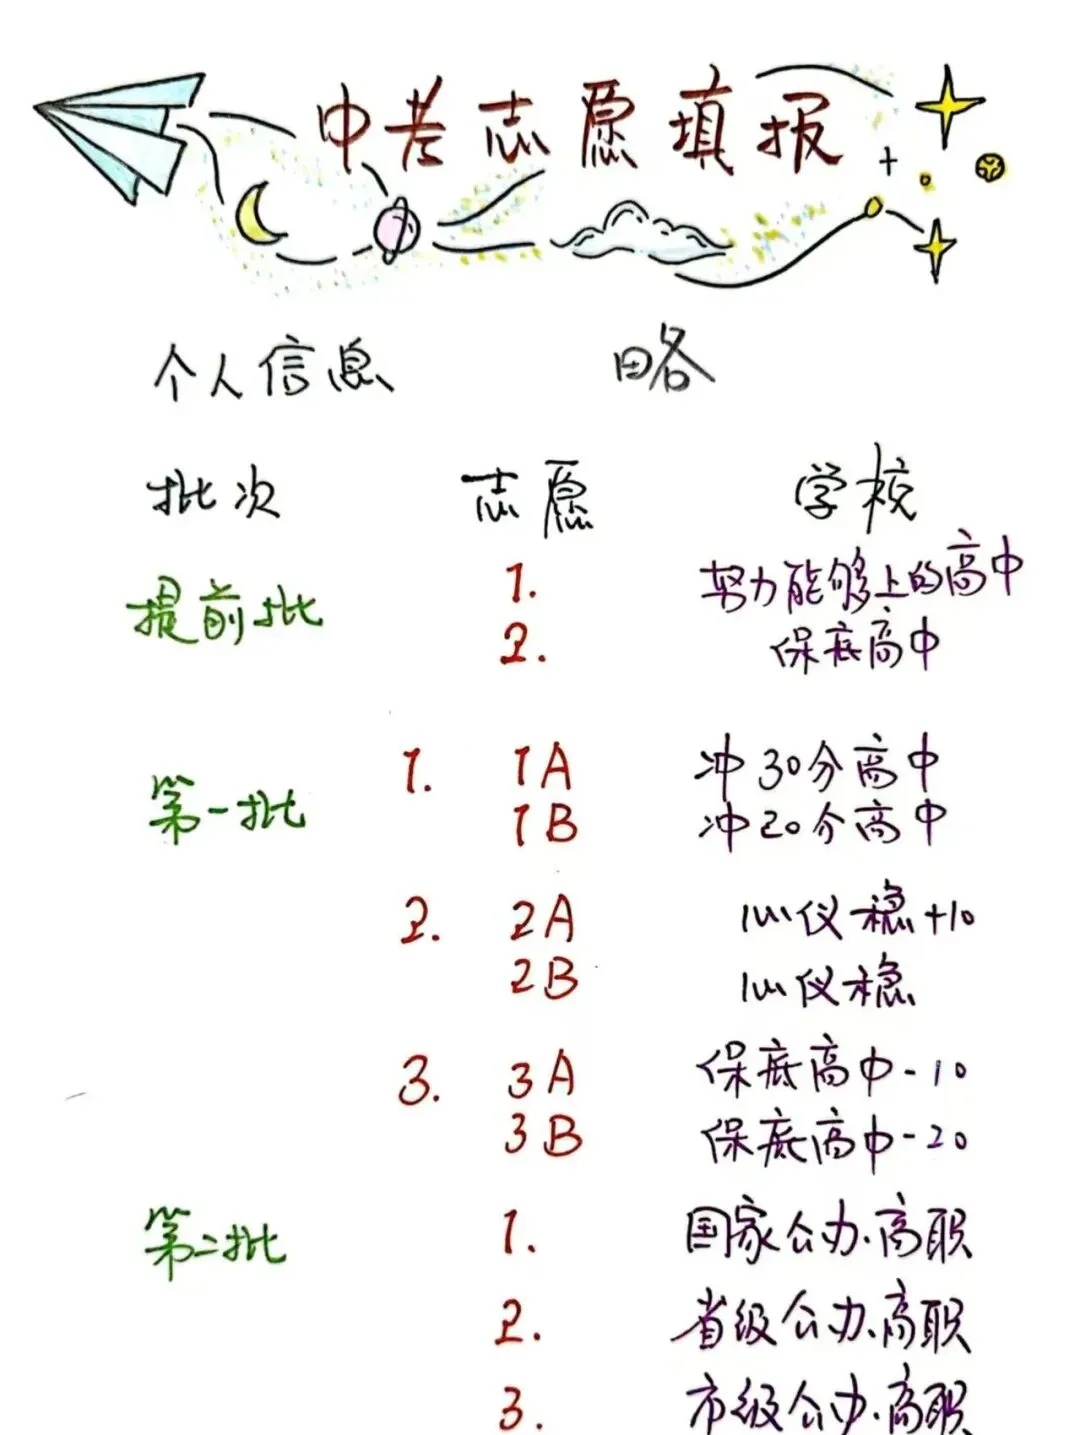 中考志愿填报
个人信息 略
批次 志愿 学校
提前批 1. 努力能够上的高中
2. 保底高中
第一批 1. 1A 冲30分高中
1B 冲20分高中
2. 2A 心仪稳+10
2B 心仪稳
3. 3A 保底高中-10
3B 保底高中-20
第二批 1. 国家公办.高职
2. 省级公办.高职
3. 市级公办.高职